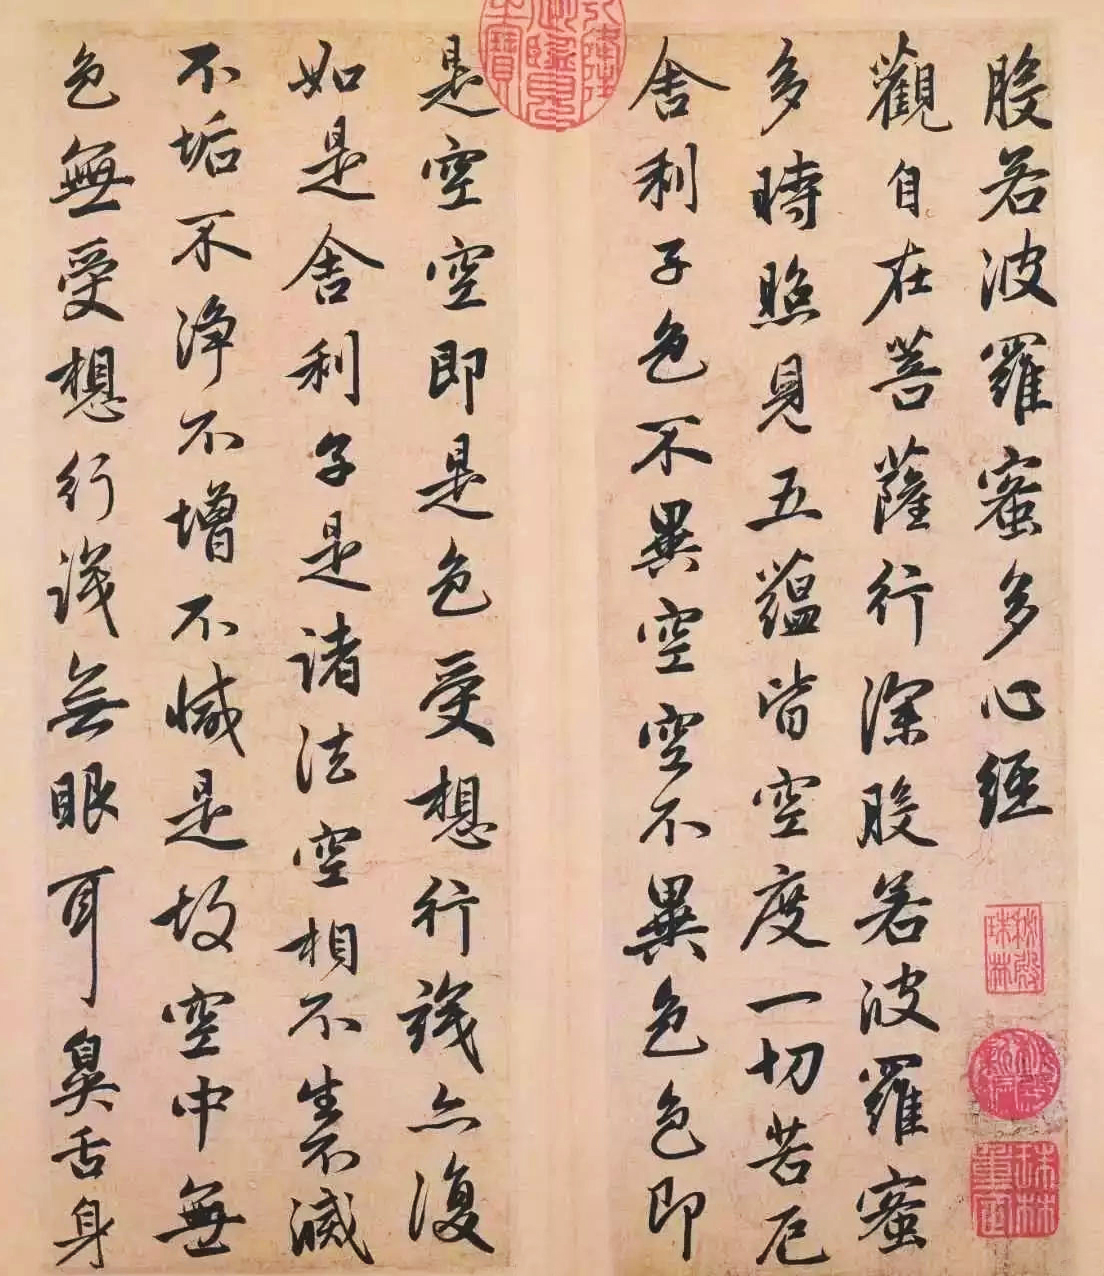 般若波羅蜜多心經
觀自在菩薩行深般若波羅蜜
多時照見五蘊皆空度一切苦厄
舍利子色不異空空不異色色即
是空空即是色受想行識亦復
如是舍利子是諸法空相不生不滅
不垢不淨不增不減是故空中無
色無受想行識無眼耳鼻舌身
秘殿珠林
秘殿新編
珠林重定